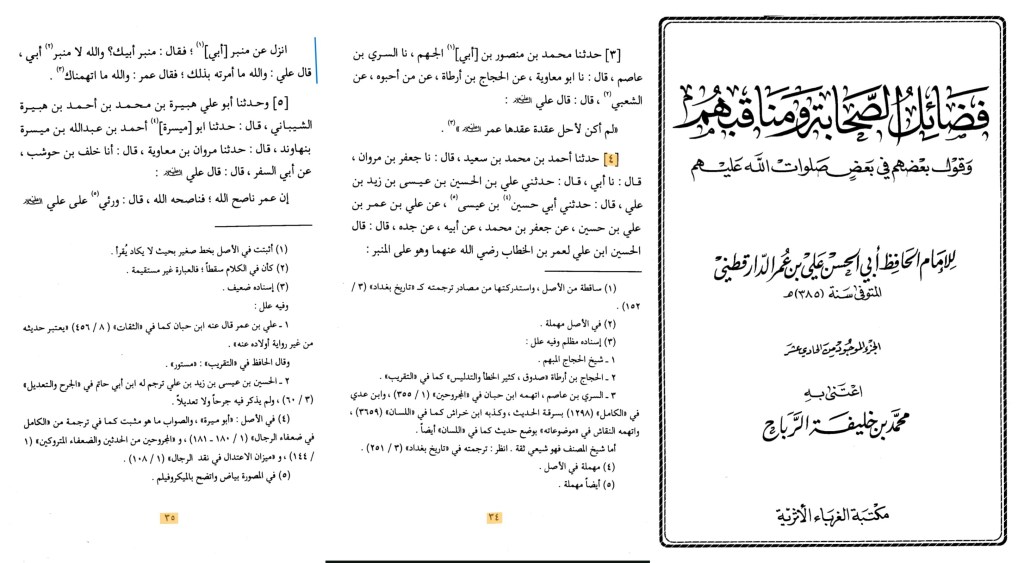 فضائل الصحابة ومناقبهم
وقول بعضهم في بعض صلوات الله عليهم
للإمام الحافظ أبي الحسن علي بن عمر الدارقطني
المتوفى سنة (٣٨٥)هـ
الجزء الموجود من الحادي عشر
اعتنى به
محمد بن خليفة الرباح
مكتبة الغرباء الأثرية
[٣] حدثنا محمد بن منصور بن [أبي](١) الجهم ، نا السري بن
عاصم ، قال : نا ابو معاوية ، عن الحجاج بن أرطاة ، عن من أخبوه ، عن
الشعبي(٢) ، قال : قال علي :
«لم أكن لأحل عقدة عقدها عمر »(٣) .
[٤] حدثنا أحمد بن محمد بن سعيد ، قال : نا جعفر بن مروان ،
قال : نا أبي ، قال : حدثني علي بن الحسين بن عيسى بن زيد بن
علي ، قال : حدثني أبي حسين(٤) بن عيسى(٥) ، عن علي بن عمر بن
علي بن حسين ، عن جعفر بن محمد ، عن أبيه ، عن جده ، قال : قال
الحسين ابن علي لعمر بن الخطاب رضي الله عنهما وهو على المنبر :
(١) ساقطة من الأصل ، واستدركتها من مصادر ترجمته كـ «تاريخ بغداد» (٣ /
١٥٢) .
(٢) في الأصل مهملة .
(٣) إسناده مظلم وفيه علل :
١ ـ شيخ الحجاج المبهم .
٢ ـ الحجاج بن أرطاة «صدوق ، كثير الخطأ والتدليس» كما في «التقريب» .
٣ ـ السري بن عاصم ، اتهمه ابن حبان في «المجروحين» (١ / ٣٥٥) ، وابن عدي
في «الكامل» (١٢٩٨) بسرقة الحديث ، وكذبه ابن خراش كما في «اللسان» (٣٦٥٩) ،
واتهمه النقاش في «موضوعاته» بوضع حديث كما في «اللسان» أيضاً .
أما شيخ المصنف فهو شيعي ثقة . انظر : ترجمته في «تاريخ بغداد» (٣ / ٢٥١) .
(٤) مهملة في الأصل .
(٥) أيضاً مهملة .
٣٤
انزل عن منبر [أبي](١) ؛ فقال : منبر أبيك؟ والله لا منبر(٢) أبي ،
قال علي : والله ما أمرته بذلك ؛ فقال عمر : والله ما اتهمناك(٣) .
[٥] وحدثنا أبو علي هبيرة بن محمد بن أحمد بن هبيرة
الشيباني ، قال : حدثنا ابو [ميسرة](٤) أحمد بن عبدالله بن ميسرة
بنهاوند ، قال : حدثنا مروان بن معاوية ، قال : أنا خلف بن حوشب ،
عن أبي السفر ، قال : قال علي :
إن عمر ناصح الله ؛ فناصحه الله ، قال : ورئي(٥) على علي
(١) أثبتت في الأصل بخط صغير بحيث لا يكاد يُقرأ .
(٢) كأن في الكلام سقطاً ؛ فالعبارة غير مستقيمة .
(٣) إسناده ضعيف .
وفيه علل :
١ ـ علي بن عمر قال عنه ابن حبان كما في «الثقات» (٨ / ٤٥٦) «يعتبر حديثه
من غير رواية أولاده عنه» .
وقال الحافظ في «التقريب» : «مستور» .
٢ ـ الحسين بن عيسى بن زيد بن علي ترجم له ابن أبي حاتم في «الجرح والتعديل»
(٣ / ٦٠) ، ولم يذكر فيه جرحاً ولا تعديلاً .
(٤) في الأصل : «أبو ميرة» ، والصواب ما هو مثبت كما في ترجمة من «الكامل
في ضعفاء الرجال» (١ / ١٨٠ ـ ١٨١) ، و «المجروحين من المحدثين والضعفاء المتروكين» (١
/ ١٤٤) ، و «ميزان الاعتدال في نقد الرجال» (١ / ١٠٨) .
(٥) في المصورة بياض واتضح بالميكروفيلم .
٣٥